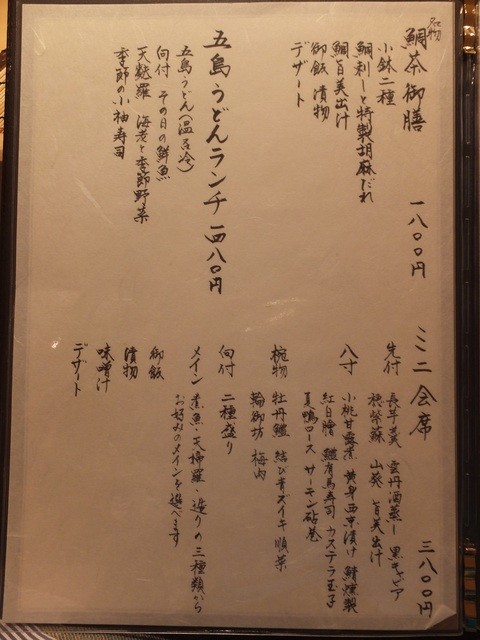 名物
鯛茶御膳 一八〇〇円
小鉢二種
鯛刺しと特製胡麻だれ
鯛旨美出汁
御飯 漬物
デザート
五島うどんランチ 一四八〇円
五島うどん(温or冷)
向付 その日の鮮魚
天麩羅 海老と季節野菜
季節の小袖寿司
ミニ会席 三八〇〇円
先付 長芋羹 雲丹酒蒸し 黒キャビア
穂紫蘇 山葵 旨美出汁
八寸 小桃甘露煮 黄身西京漬け 鯖燻製
紅白膾 鱧有馬寿司 カステラ玉子
夏鴨ロース サーモン砧巻
椀物 牡丹鱧 結び青ズイキ 順菜
輪柚子 梅肉
向付 二種盛り
メイン 煮魚・天婦羅・造りの三種類から
お好みのメインを選べます
御飯
漬物
味噌汁
デザート